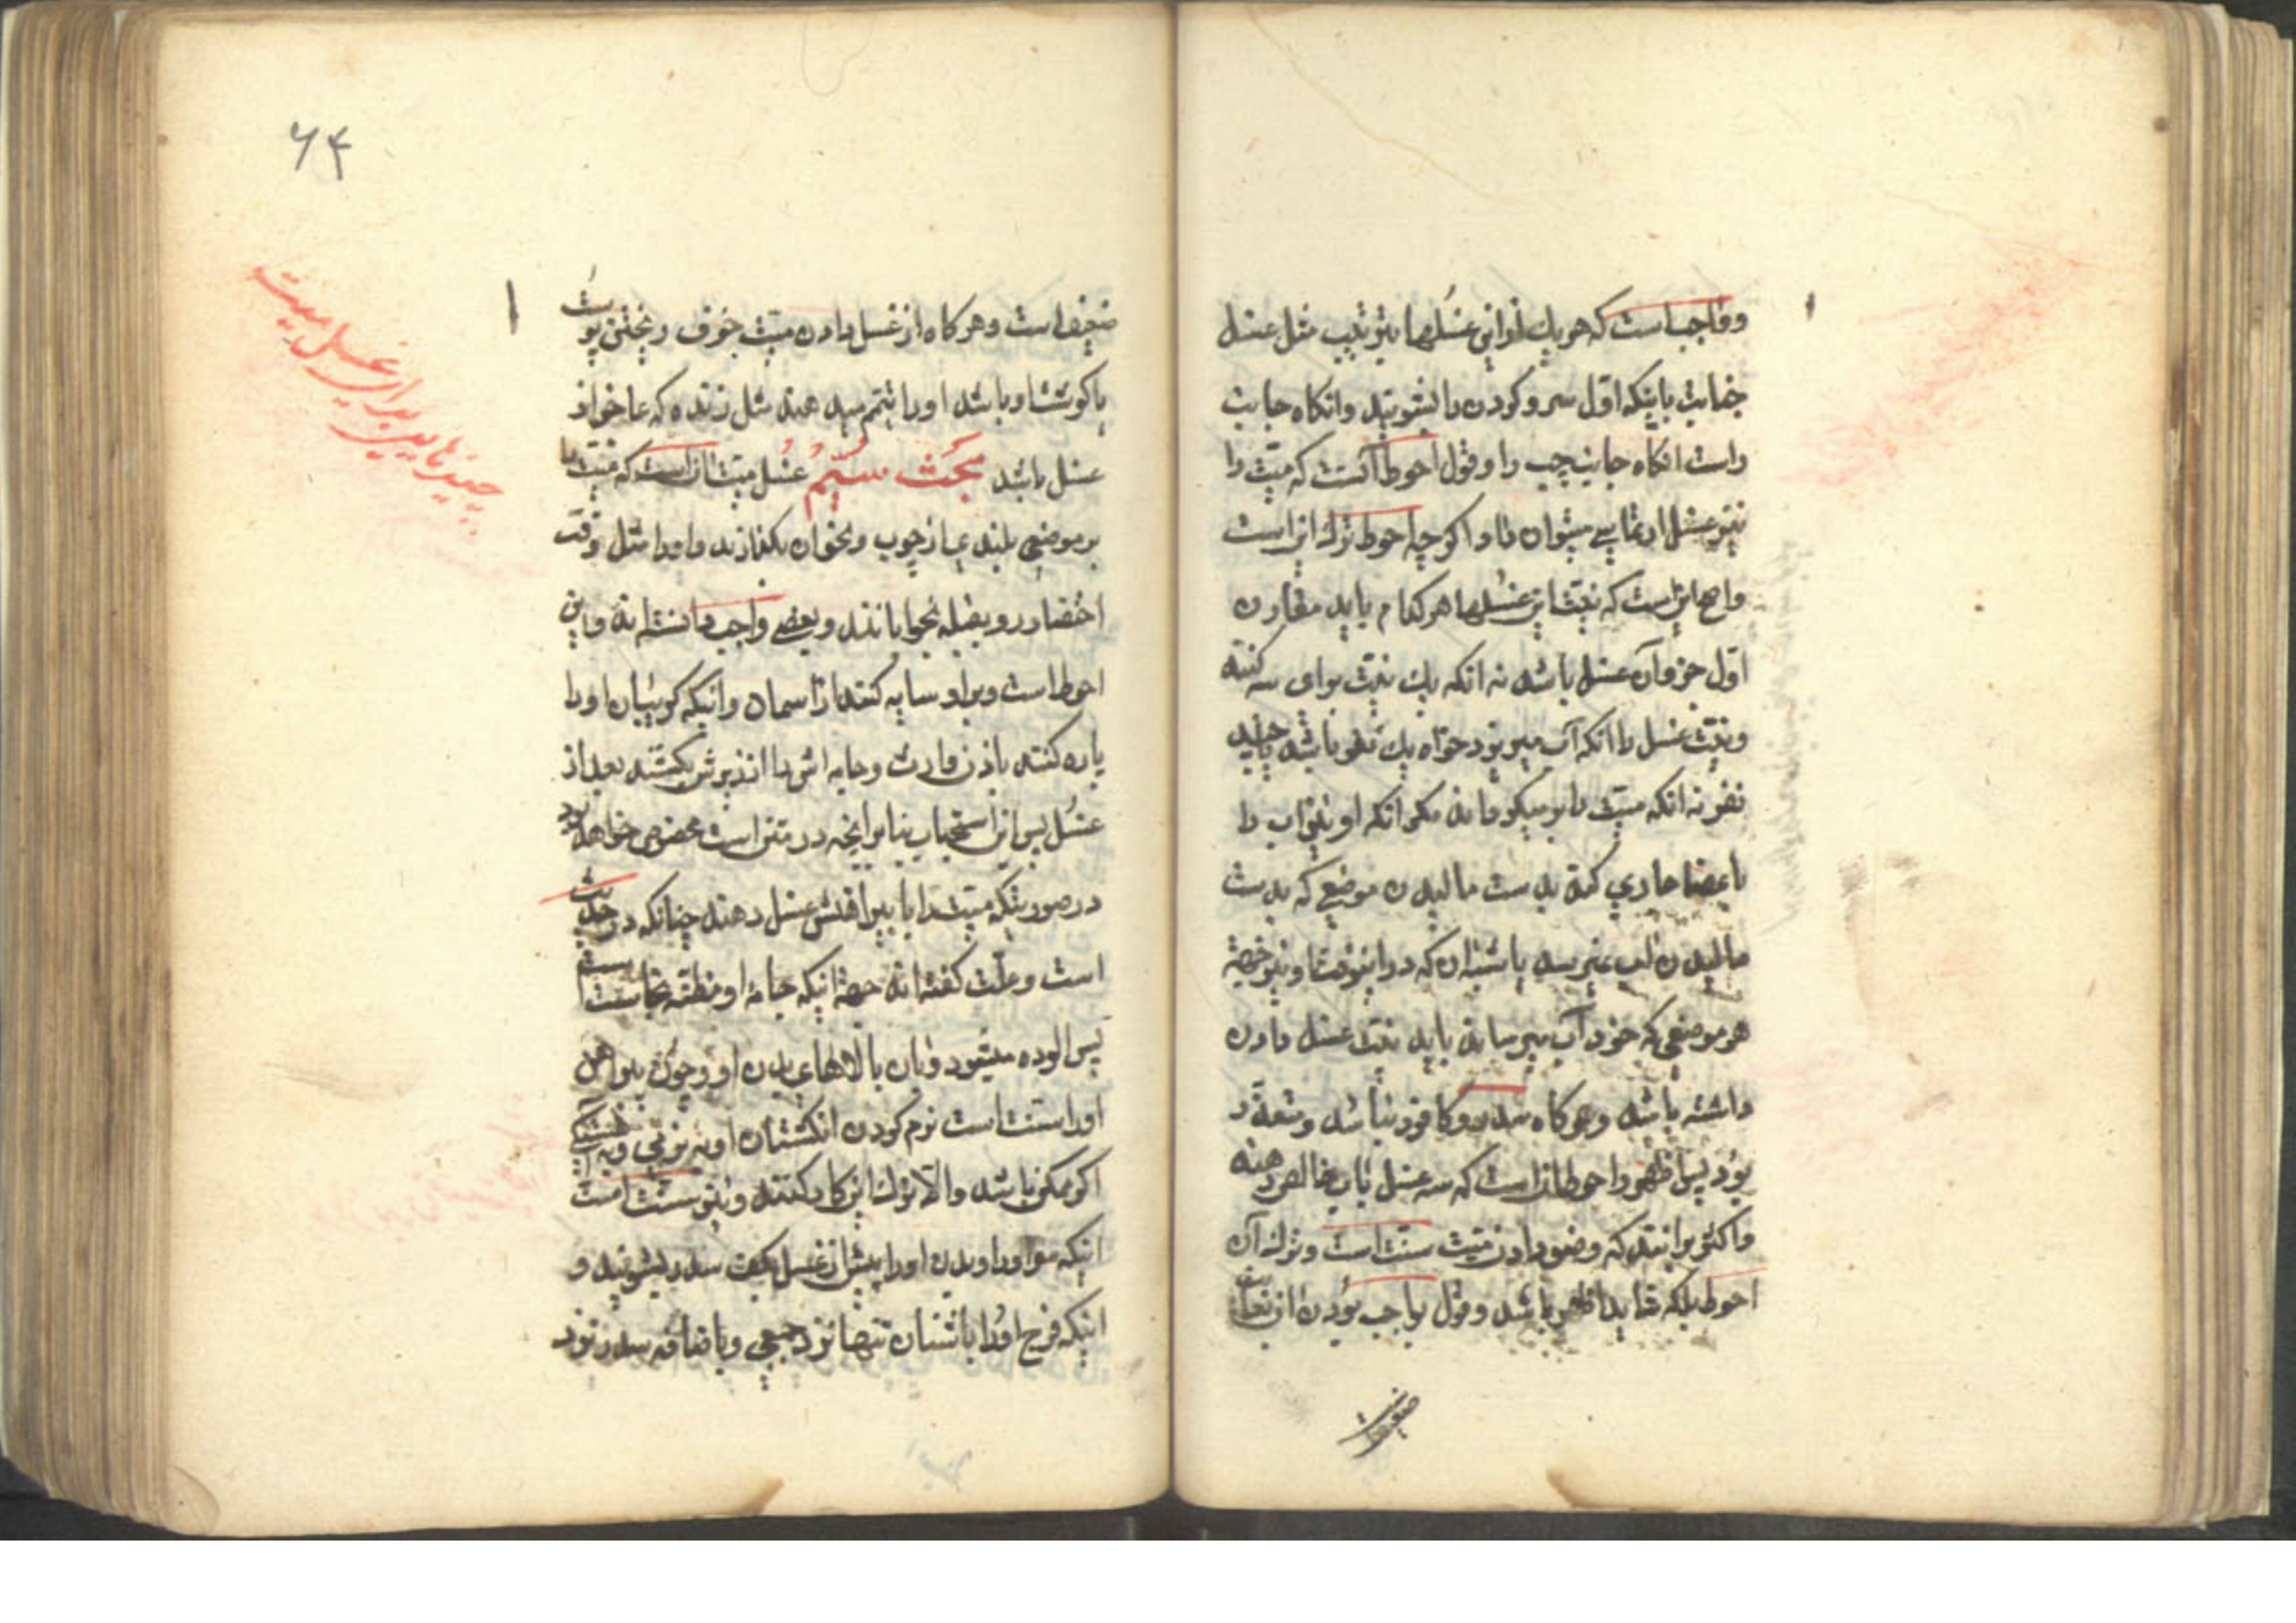 و واجبست که هر یك از این غسلها بترتیب مثل غسل
جنابت باینکه اول سر و کردن را بشویند و انکاه جانب
راست انکاه جانب چپ را و قول احوط آنست که میّت را
نیز غسل ارتماسی میتوان داد اکرچه احوط ترك انست
واصح اینست که نیّت این غسلها هر کدام باید مقارن
اوّل جزو آن غسل باشد نه انکه یك نیّت برای سه کنند
و نیّت غسل را انکه آب میریزد خواه یك نفر باشد یا چند
نفر نه انکه میّت را بر میکرداند مکر انکه او نیز آب را
باعضا جاری کند بدست مالیدن موضعی که بدست
مالیدن آب نمیرسد یا شبه ان که در اینوقت او نیز جهة
هر موضعی که خود آب میرساند باید نیّت غسل دادن
داشته باشد و هرکاه سدر و کافور نباشد و متعذّر
بود پس اظهر و احوط انست که سه غسل باب خالص دهند
و اکثر برانند که وضو دادن میّت سنّت است و ترك آن
احوط بلکه شاید اظهر باشد و قول بواجب بودن ان بغایت
ضعیفست
۶۴
ضعیف است و هرکاه از غسل دادن میّت خوف ریختن پوست
یا کوشت او باشد او را تیمّم میدهند مثل زنده که عاجز از
غسل باشد مبحث سیّم غسل میّت انست که میّت را
بر موضعی بلندی از چوب و نحو ان بکذارند و او را مثل وقت
احتضار رو بقبله بخوابانند و بعضی واجب دانسته اند و این
احوط است و بر او سایه کنند از آسمان و اینکه کریبان او را
پاره کنند باذن وارث و جامه اش را از زیرش بکشند بعد از
غسل پس این استحباب بنابر انچه در متن است مخصوص خواهد بود
در صورتیکه میّت را با پیراهنش غسل دهند چنانکه در حدیث
است و علّت کفته اند جهة اینکه جامه او مظنّه نجاست است
پس الوده میشود بان بالاهای بدن او و چون پیراهن
او را سنّت است نرم کردن انکشتان او بنرمی و به آهستکی
اکر ممکن باشد و الّا ترك این کار کنند و نیز سنّت است
اینکه سر او را و بدن او را پیش از غسل بکف سدر بشویند و
اینکه فرج او را باشنان تنها نزد جمعی و باضافه سدر نزد